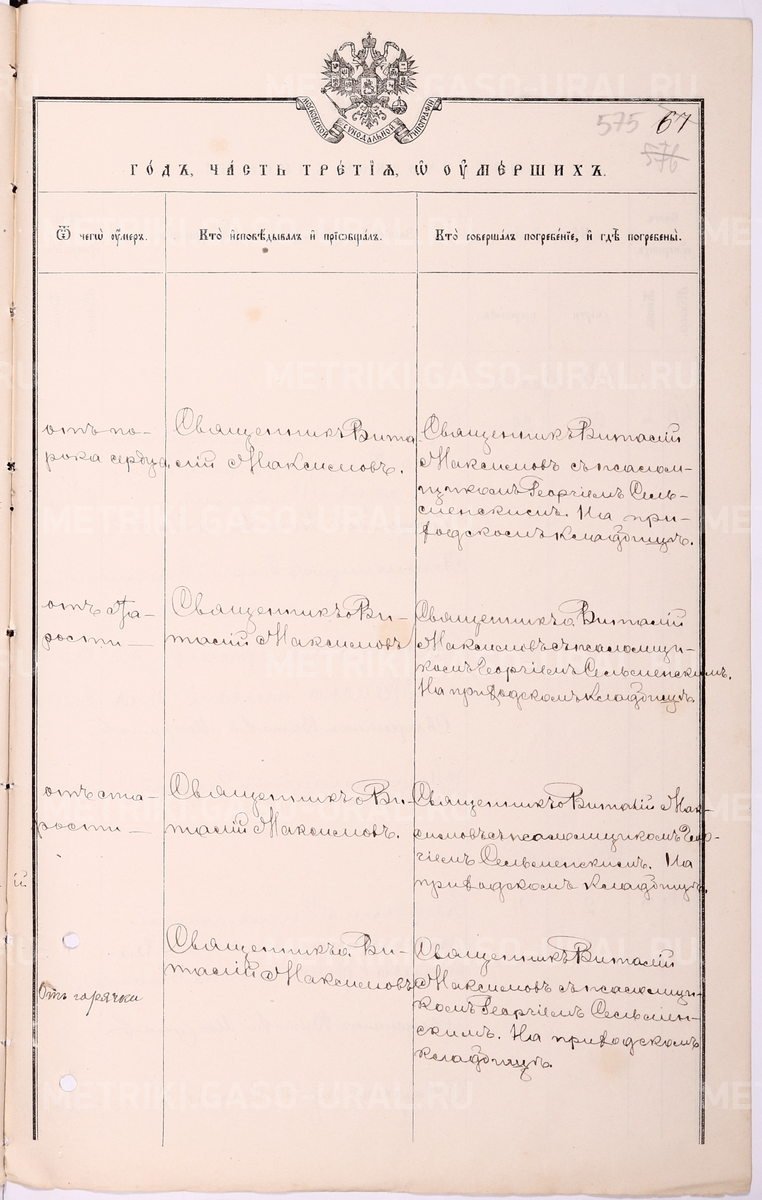 МОСКОВСКОЙ СѴНОДАЛЬНОЙ ТИПОГРАФІИ
575 67
576
ГО́ДЪ, ЧА́СТЬ ТРЕ́ТІѦ, Ѡ ОУМЕ́РШИХЪ.
Ѿ чегѡ̀ оу́меръ.
Кто̀ и҆сповѣ́дывалъ и҆ прїѡбща́лъ.
Кто̀ соверша́лъ погребе́нїе, и҆ гдѣ̀ погребены̀.
отъ по-
рока сердца,
Священникъ Вита
лій Максимовъ.
Священникъ Виталій
Максимовъ съ псалом-
щикомъ Георгіемъ Сель-
менскимъ. На при-
ходскомъ кладбищѣ.
отъ ста-
рости —
Священникъ Ви-
талій Максимовъ
Священникъ Виталій
Максимовъ съ псаломщи-
комъ Георгіемъ Сельменскимъ.
На приходскомъ кладбищѣ.
отъ ста-
рости —
Священникъ Ви-
талій Максимовъ.
Священникъ Виталій Мак-
симовъ съ псаломщикомъ Геор-
гіемъ Сельменскимъ. На
приходскомъ кладбищѣ.
й
Отъ горячки
Священникъ Ви-
талій Максимовъ
Священникъ Виталій
Максимовъ съ псаломщи-
комъ Георгіемъ Сельмен-
скимъ. На приходскомъ
кладбищѣ.
METRIKI.GASO-URAL.RU